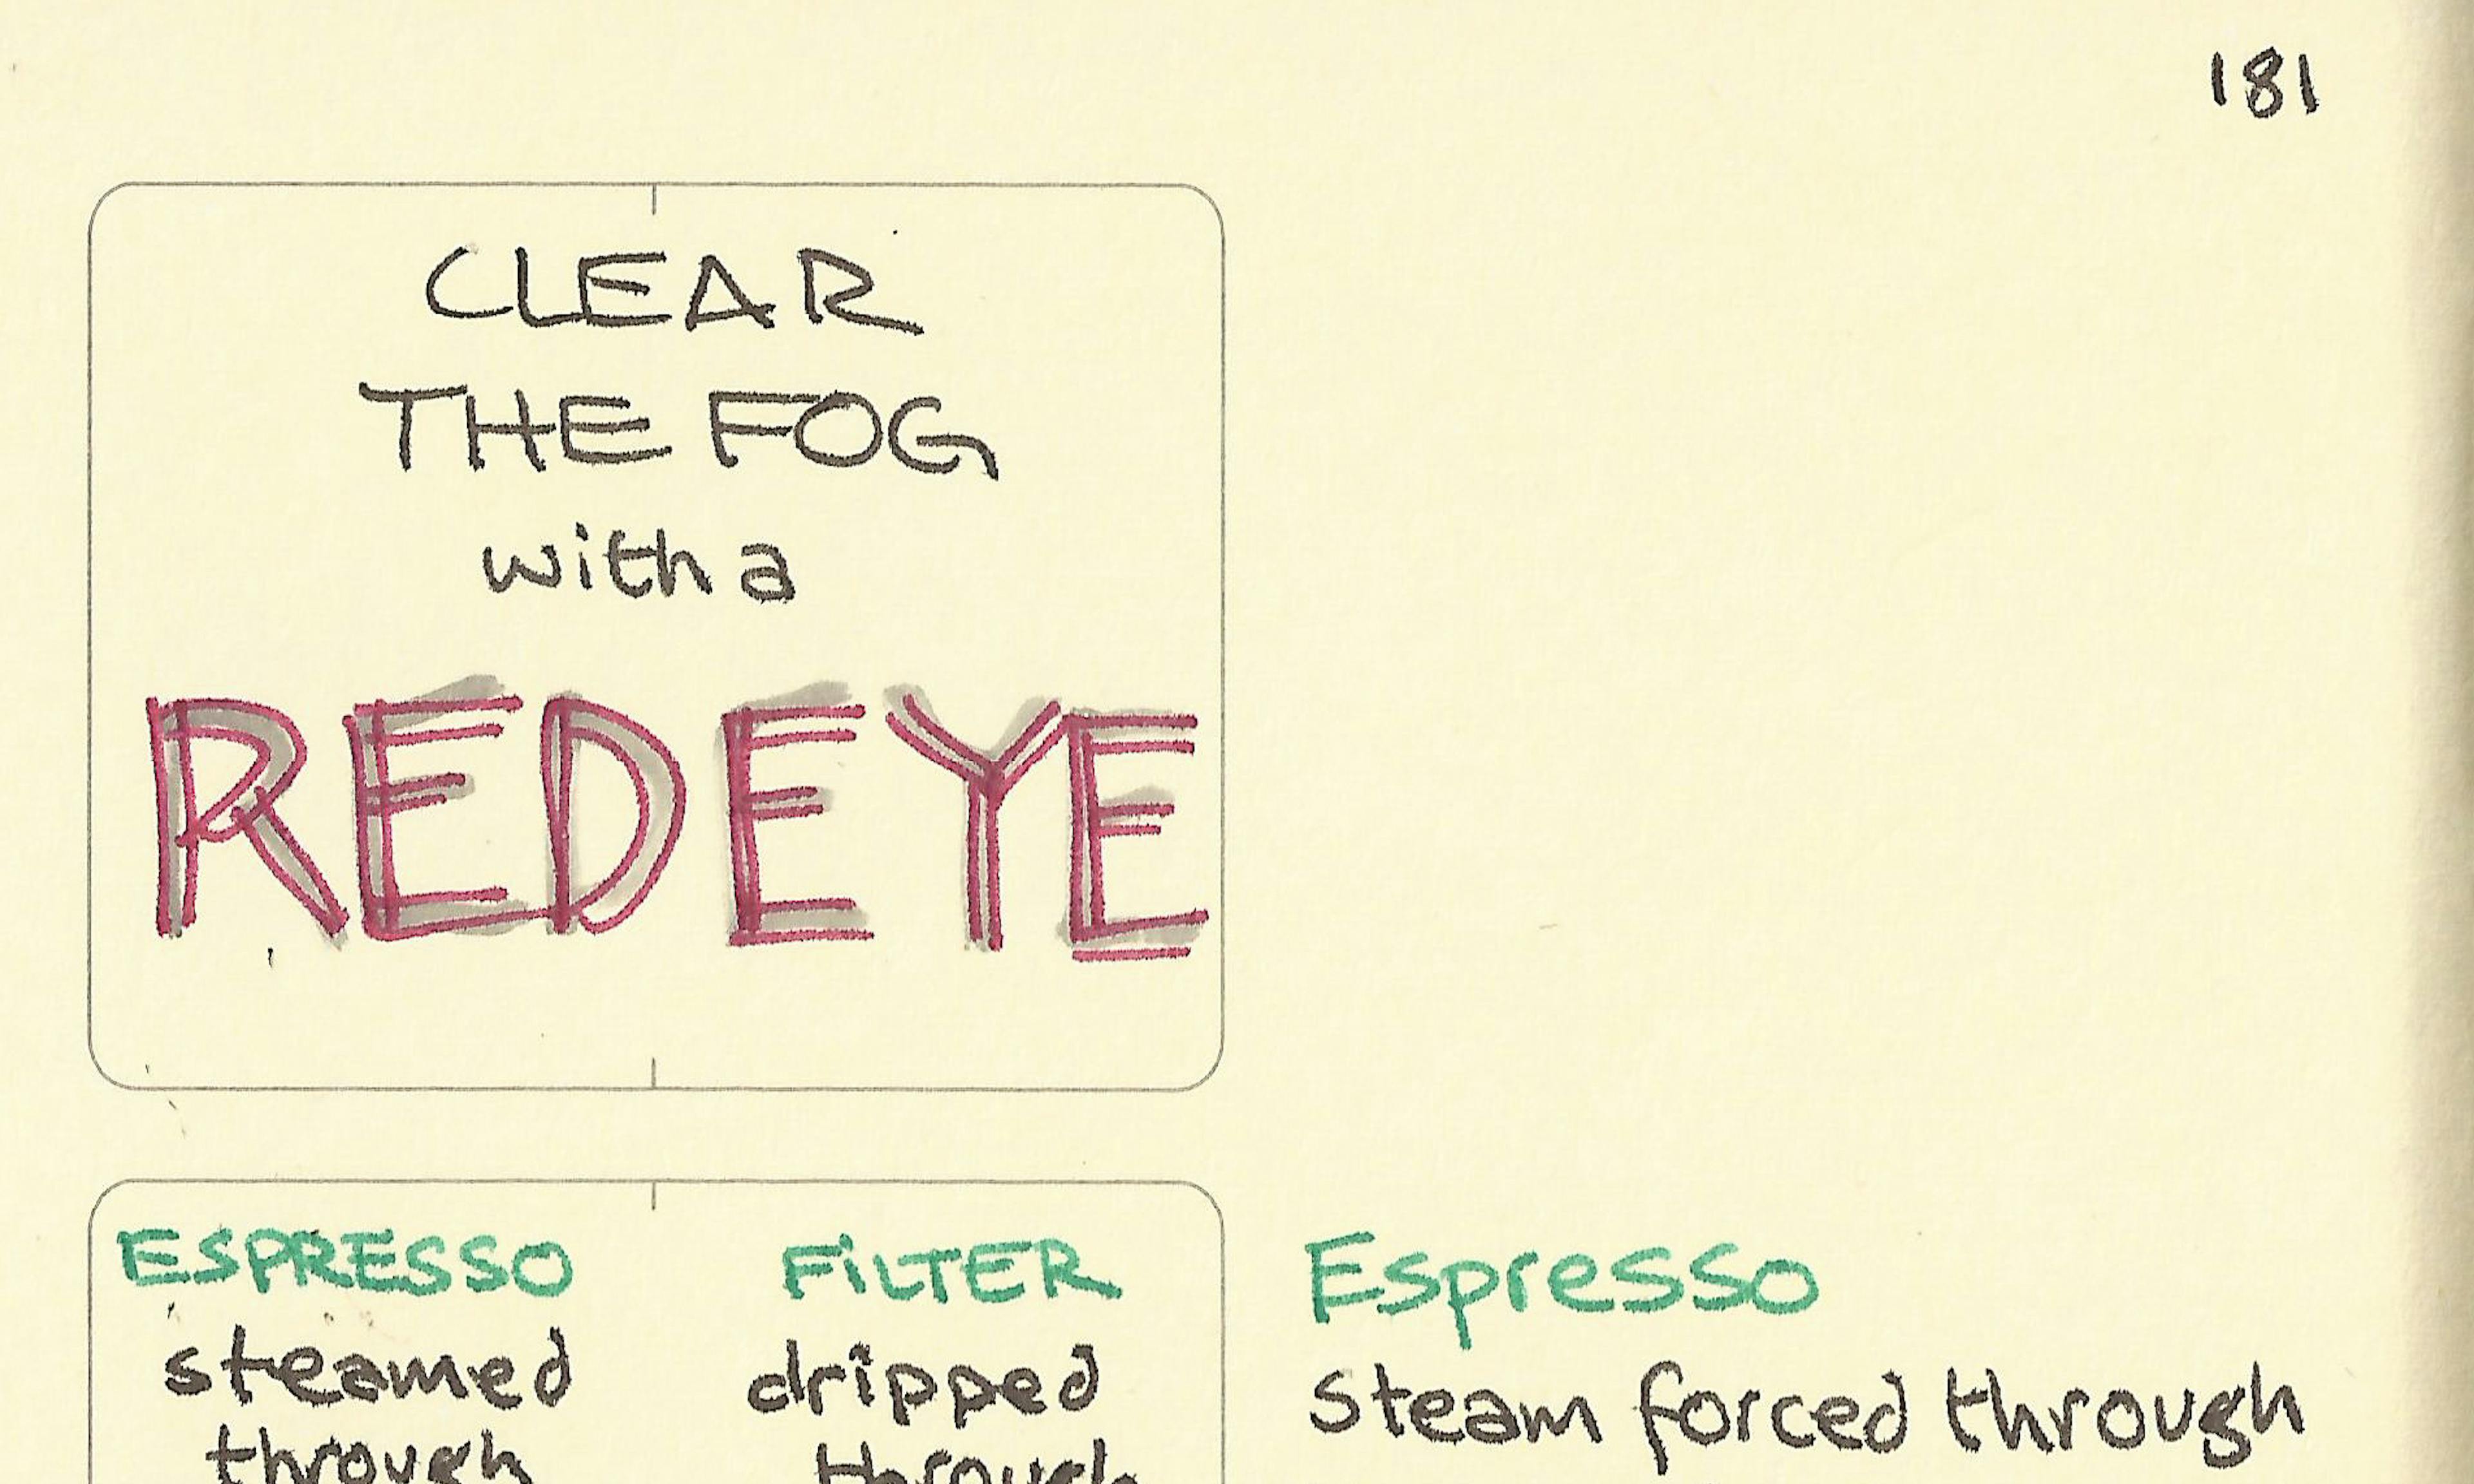 181
CLEAR
THE FOG
with a
RED EYE
ESPRESSO
steamed
through
FILTER
dripped
through
Espresso
Steam forced through